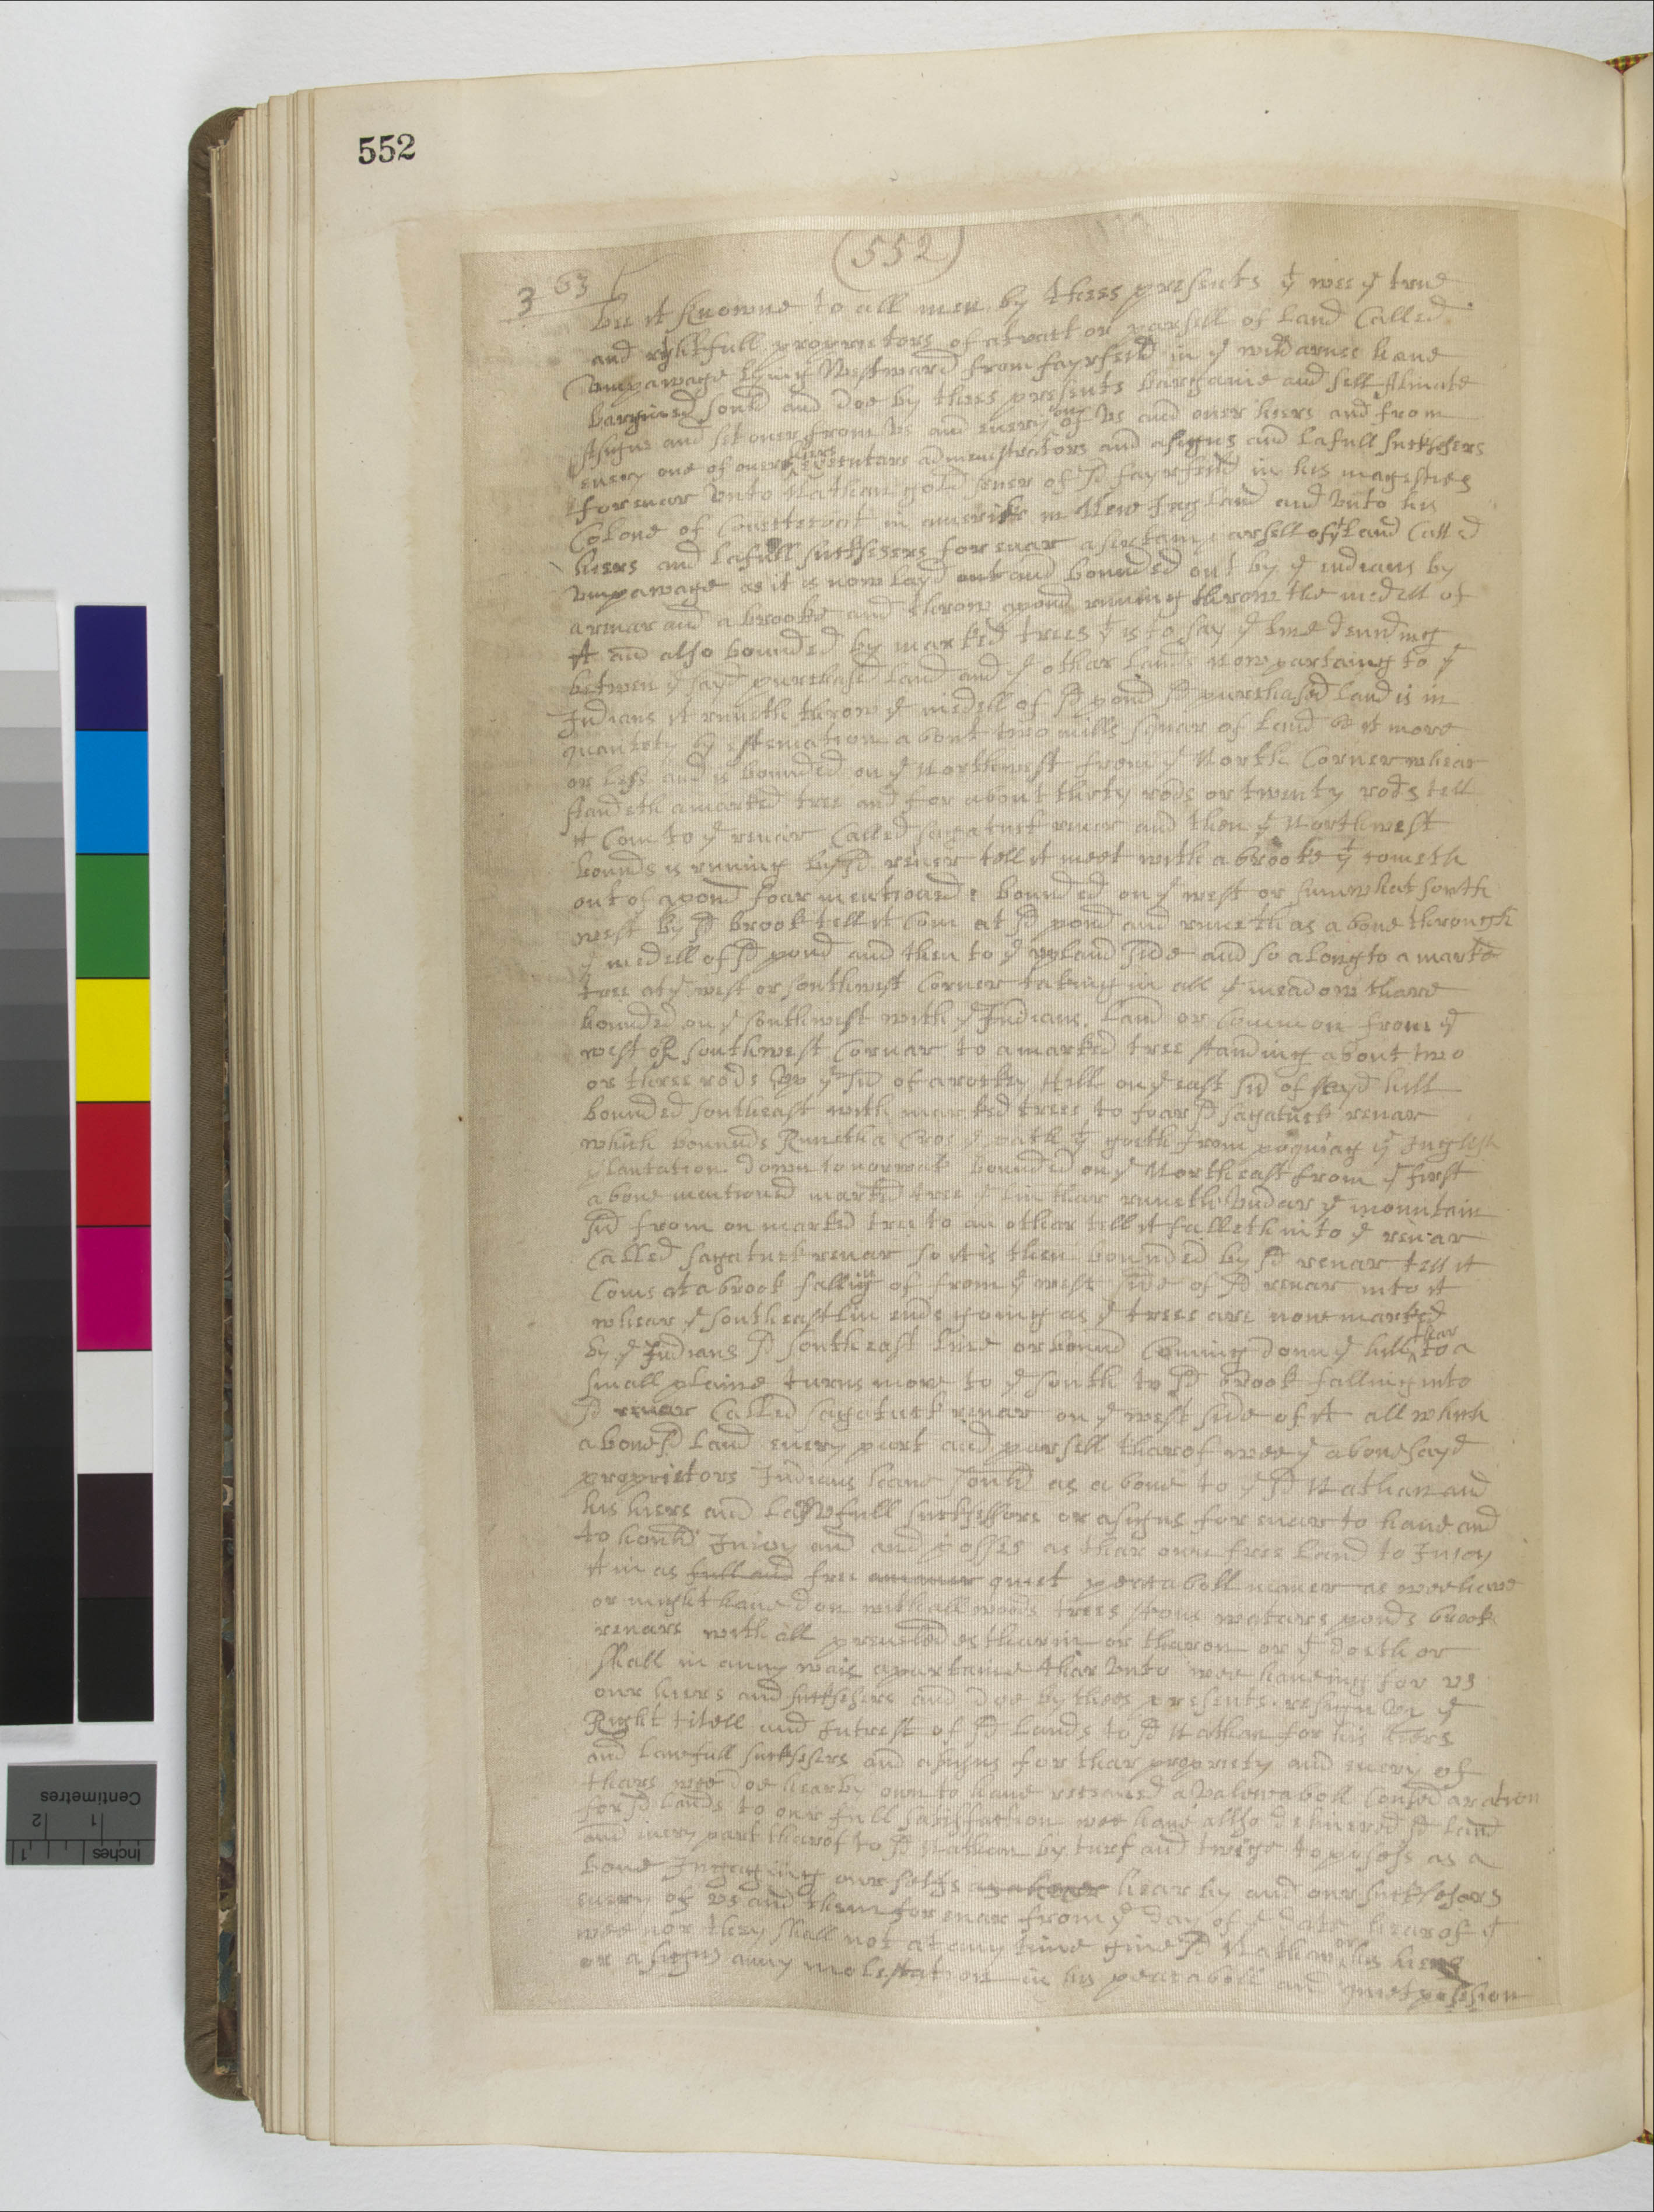 552
(552)
3 63
bee it Knowne to all men by thees presents yt wee ye true
and rightfull proprietors of atract or parsell of land Called
Umpawage lying Westward from fayrfeild in ye wildarnes haue
bargined sould and doe by thees presents bargaine and sell Alinate
Asigne and set ouer from Us and euery one of Us and ouer hiers and from
euery one of ouers hiers executars administrators and asigns and lafull sucksesers
for euar Unto Nathan gold sener of sd fayrfeild in his magesties
Colone of Conetticoot in amerike in New Ingland and Unto his
hiers and lafull sucksesers for euar a sertain parsell of yt land Called
Umpawage as it is now layd out and bounded out by ye indians by
a reuar and a brooke and throw apond runing throw the medell of
it and also bounded by marked trees yt is to say ye line deuiding
betwen ye sayd purchased land and ye othar lands now partaing to ye
Indians it runeth throw ye medell of sd pond sd purchased land is in
quantety by estemation about two mills squar of land be it more
or less and is bounded on ye Northwest from ye North Corner whear
standeth a marked tree and for about thirty rods or twenty rods tell
it Com to ye reuar Called sagatuck reuer and then ye Northwest
bounds is runing by sd reuer tell it meet with a brooke yt cometh
out of apond foarmentioned & bounded on ye west or sumwhat south
west by sd brook tell it Com at sd pond and runeth as aboue through
ye medell of sd pond and then to ye upland side and so along to a marke
tree at ye west or southwest Corner taking in all ye meadow thare
bounded on ye southwest with ye Indians land or Common from ye
west or southwest Cornar to a marked tree standing about two
or three rods up ye sid of a rocky Hill on ye east sid of sayd hill
bounded southeast with marked trees to foar sd sagatuck reuar
which bounds Runeth a Cros ye path yt goeth from poquiag ye Inglish
plantation down to norwak bounded on ye Northeast from ye first
aboue mentioned marked tree ye lin thar runeth Undar ye mountain
sid from on marked tree to an othar tell it falleth into ye reuar
Called sagatuck reuar so it is then bounded by sd reuar tell it
Coms at a brook falling of from ye west side of sd reuar into it
whear ye southeast lin ends going as ye trees are now marked
by ye Indians sd southeast line or bound Coming down ye hill thar to a
small plaine turns more to ye south to sd brook falling into
sd reuar Called sagatuck reuar on ye west side of it all which
aboue sd land euery part and parsell tharof wee ye abouesayd
proprietors Indians haue sould as aboue to ye sd Nathan and
his hiers and lawfull sucksessors or asigns for euar to haue and
to hould Inioy and and posses as thar own free land to Inioy
it in as full and free amaner quiet peacaboll maner as wee haue
or might haue don with all woods trees stons watars ponds brook
reuars with all preueledges tharin or tharon or yt doeth or
shall in anny wais apartaine thar Unto wee haueing for us
our hiers and sucksesers and doe by thees presents resign up ye
Right titell and Intrest of sd lands to sd Nathan for his hiers
and lawfull sucksesers and asigns for thar propriety and euery of
thars wee doe hearby own to haue receaued a Valeweaboll Considaration
for sd lands to our full satisfaction wee haue allso deliuered sd land
and euery part tharof to sd Nathan by turf and twige to poses as a
boue Ingaging our selfs hearby and our sucksesors
euery of us and them for euar from ye day of ye date hearof yt
wee nor they shall not at any time giue sd Nathan or his hiers
or asigns anny molestation in his peacaboll and quiet posesion
Centimetres
1 2
inches
1